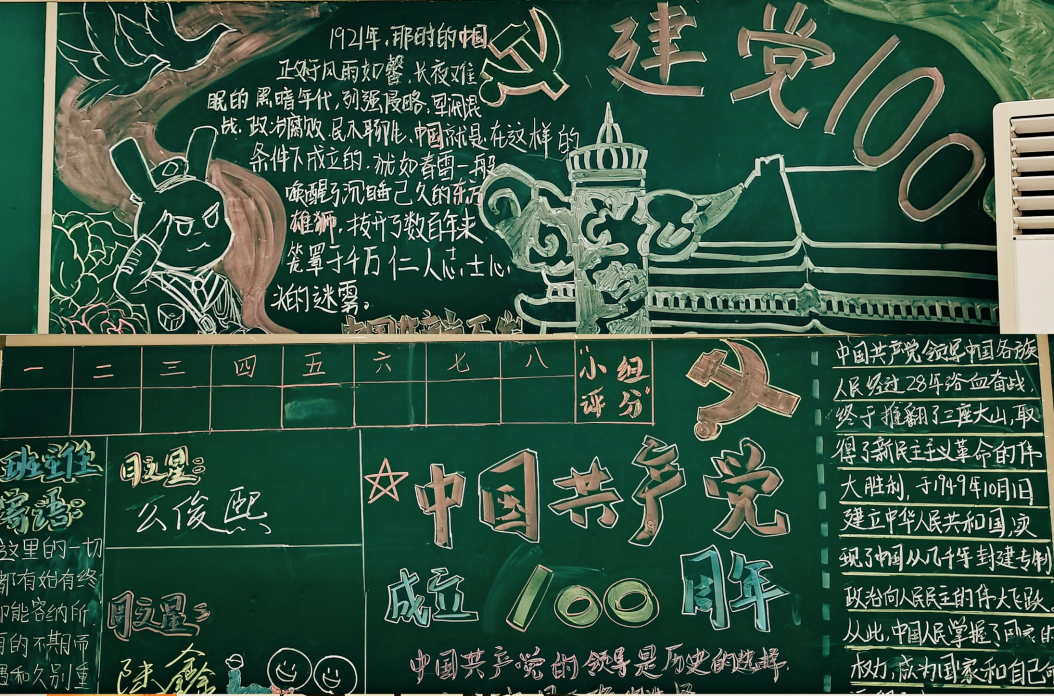 1921年,那时的中国
正好风雨如磐,长夜难
眠的黑暗年代,列强侵略,军阀混
战,政治腐败,民不聊生,中国就是在这样的
条件下成立的,犹如春雷一般
唤醒了沉睡已久的东方
雄狮,拨开了数百年来
笼罩于千万仁人志士心
头的迷雾。
建党100
一 二 三 四 五 六 七 八
"小组
评分"
班主任
寄语:
这里的一切
都有始有终
却能容纳所
有的不期而
遇和久别重
日之星:
么俊熙
周之星:
陆鑫
中国共产党
成立100周年
中国共产党的领导是历史的选择,
中国共产党领导中国各族
人民经过28年浴血奋战,
终于推翻了三座大山,取
得了新民主主义革命的伟
大胜利,于1949年10月1日
建立中华人民共和国,实
现了中国从几千年封建专制
政治向人民民主的伟大飞跃。
从此,中国人民掌握了国家的
权力,成为国家和自己